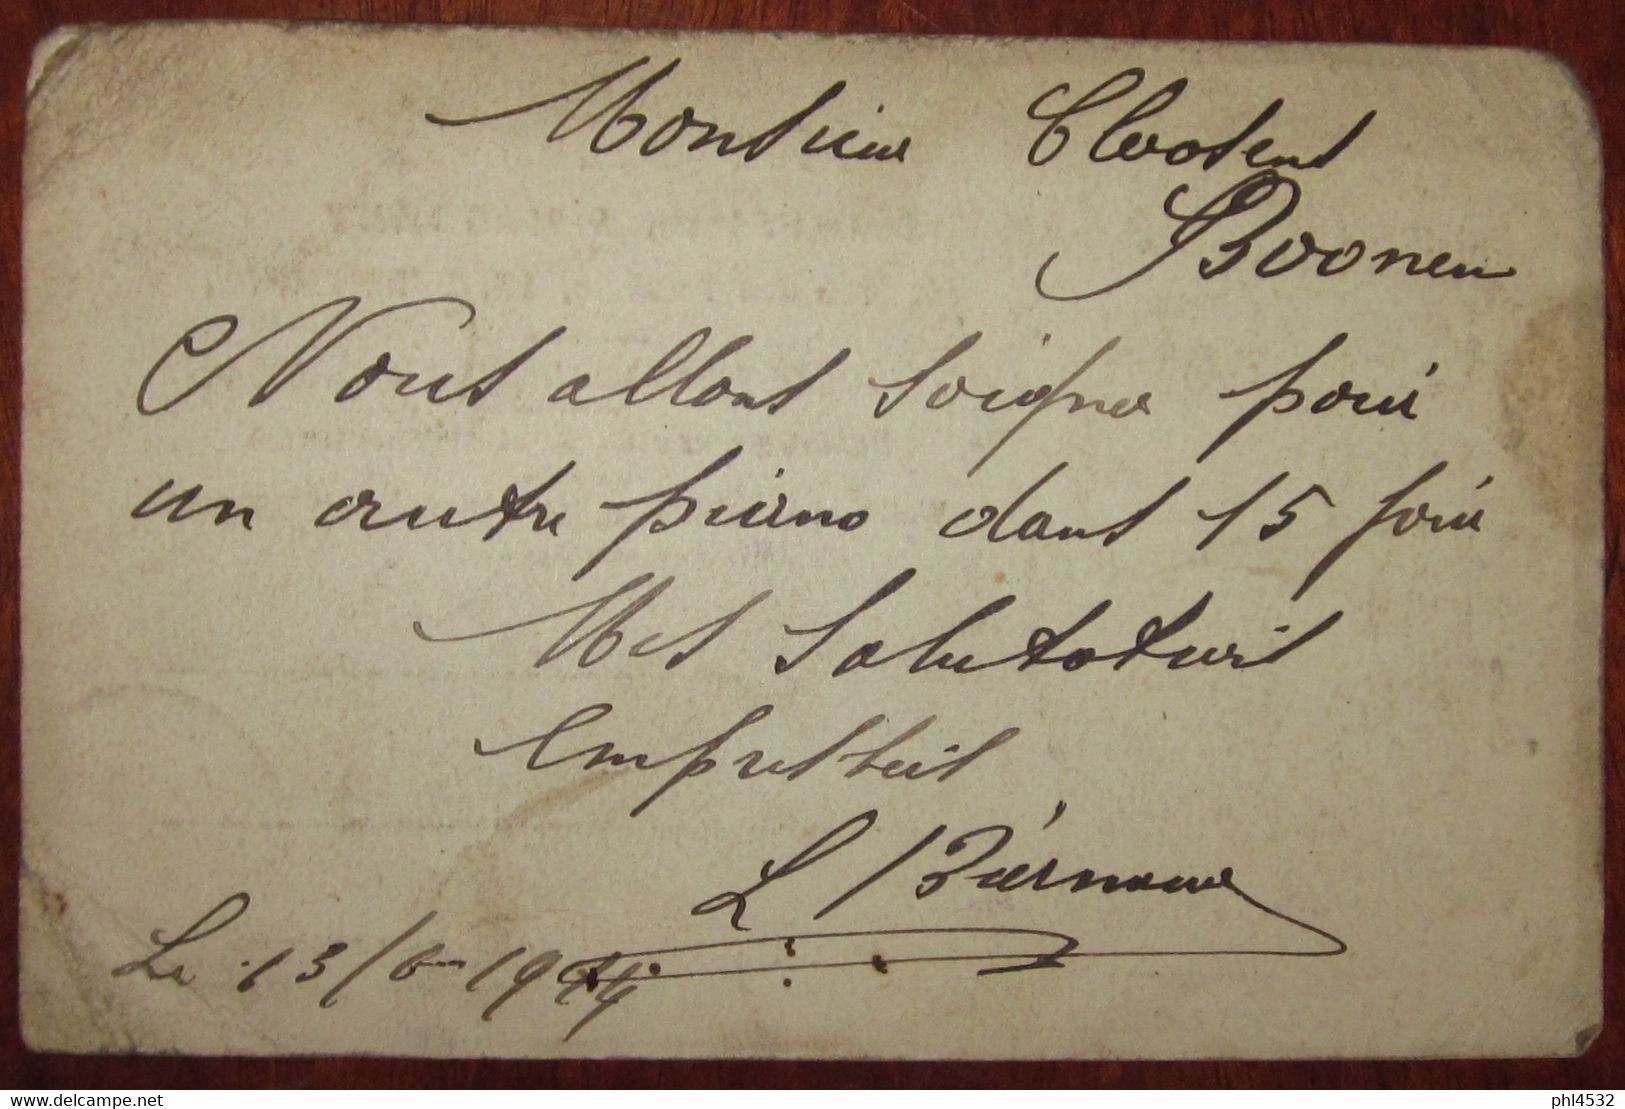 Monsieur Clootens
Boonen
Nous allons soigner pour
un autre piano dans 15 jour
Mes Salutations
empressées
L Biernaux
Le 13/6-1914
delcampe.net
phl4532